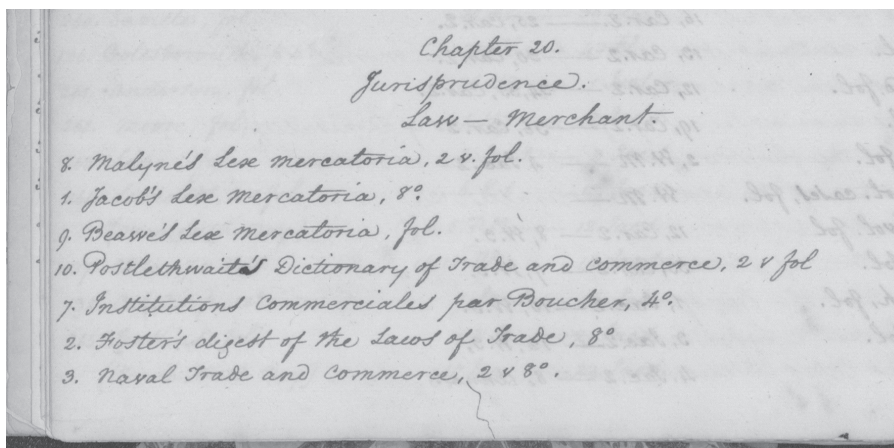 Chapter 20.
Jurisprudence.
Law — Merchant.
8. Malyne's Lex mercatoria, 2 v. fol.
1. Jacob's Lex mercatoria, 8°.
9. Beawe's Lex mercatoria, fol.
10. Postlethwait's Dictionary of Trade and commerce, 2 v fol
7. Institutions Commerciales par Boucher, 4°.
2. Foster's digest of the Laws of Trade, 8°
3. Naval Trade and Commerce, 2 v 8°.